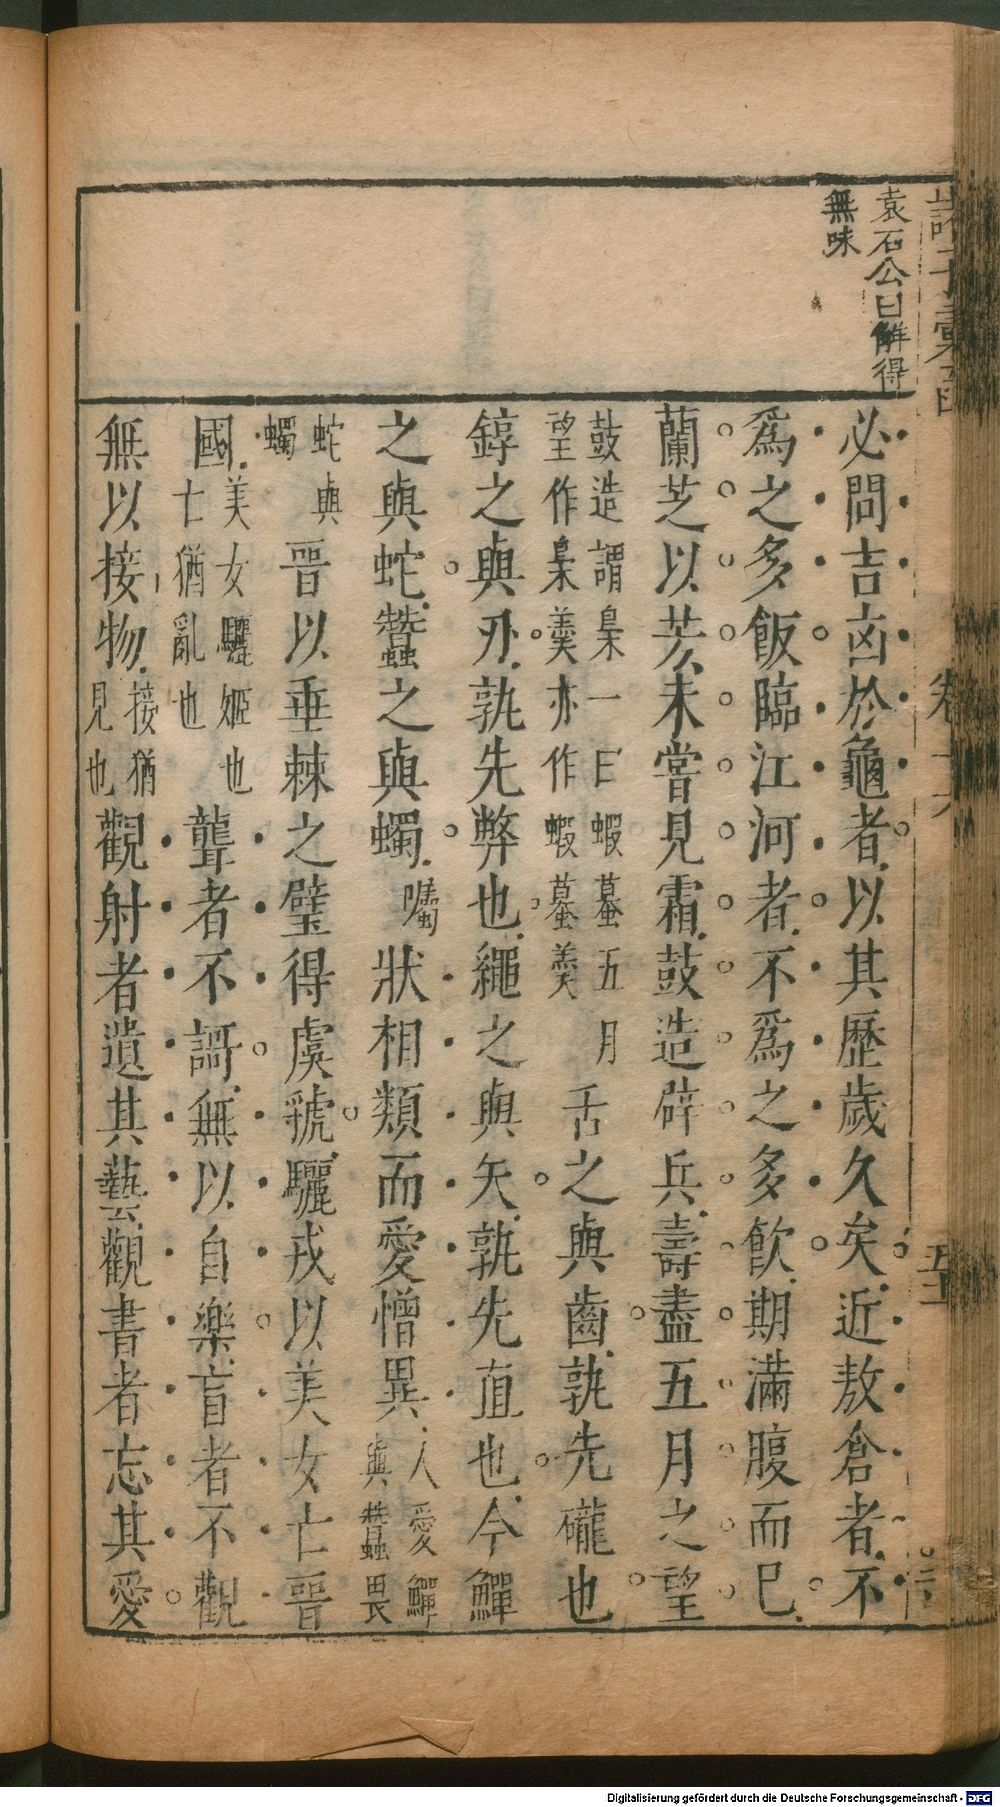 袁石公曰解得
無味
必問吉凶於龜者以其歷歲久矣近敖倉者不
爲之多飯臨江河者不爲之多飲期滿腹而已
蘭芝以芳未嘗見霜鼓造辟兵壽盡五月之望
鼓造謂梟一曰蝦蟇五月
望作梟羹亦作蝦蟇羹
舌之與齒孰先礲也
錞之與刃孰先弊也繩之與矢孰先直也今鱓
之與蛇蠶之與蠋
蠾
狀相類而愛憎異
人愛鱓
與蠶畏
蛇與
蠋
晉以垂棘之璧得虞虢驪戎以美女亡晉
國
美女驪姬也
亡猶亂也
聾者不謌無以自樂盲者不觀
無以接物
接猶
見也
觀射者遺其藝觀書者忘其愛
卷十六
Digitalisierung gefördert durch die Deutsche Forschungsgemeinschaft - DFG